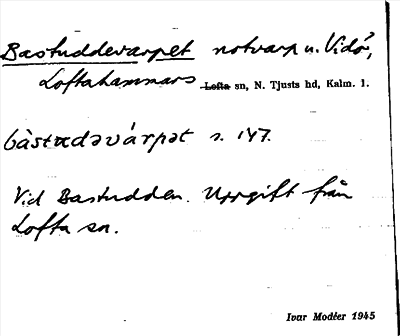 Bastuddevarpet notvarp u. Vidö,
Loftahammars Lofta sn, N. Tjusts hd, Kalm. l.
bàstɯdəvárpət s. 147.
Vid Bastudden. Uppgift från
Lofta sn.
Ivar Modéer 1945